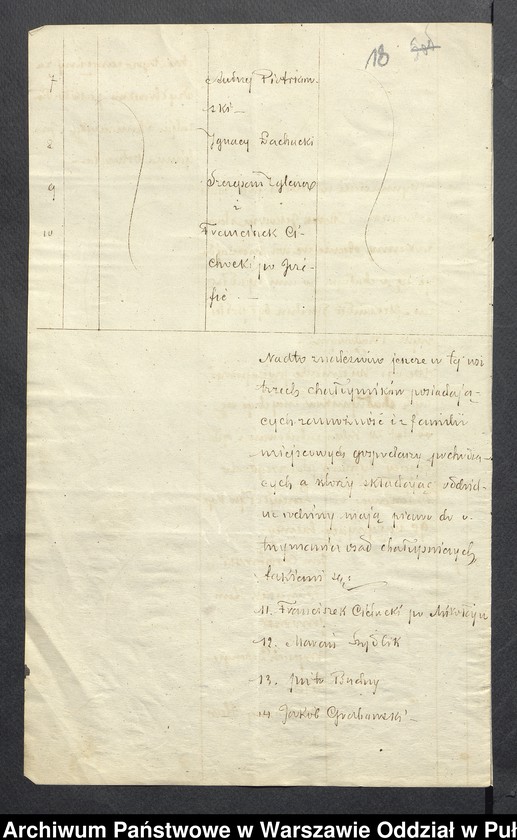 18
7
Piotrkow-
ski
8 Ignacy Lachucki
9 Szczepan
i
10 Franciszek Ci-
chocki po Józe-
fie
Nadto znaleziono jeszcze w tej wsi
trzech chałupników posiadają-
cych zamożność i z familii
miejscowych gospodarzy pochodzą-
cych a którzy składając oddziel-
ne rodziny mają prawo do o-
trzymania osad chałupniczych,
takiemi są:
11. Franciszek Cichocki po Mikołaju
12. Marcin
13. Budny
14 Jakób Grabowski
Archiwum Państwowe w Warszawie Oddział w Puł